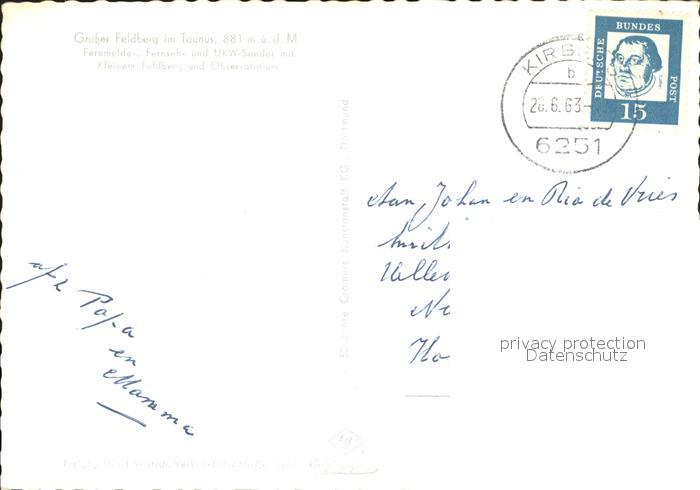 Großer Feldberg im Taunus, 881 m ü. d. M
Fernmelde-, Fernseh- und UKW-Sender mit
Kleinem Feldberg und Observatorium
DEUTSCHE
BUNDES
POST
15
b
28.6.63
6251
50 Jahre Cramers Kunstanstalt KG Dortmund
Aan Johan en Ria de Vries
Ne
Ho
afz
Papa
en
Mamma
privacy protection
Datenschutz